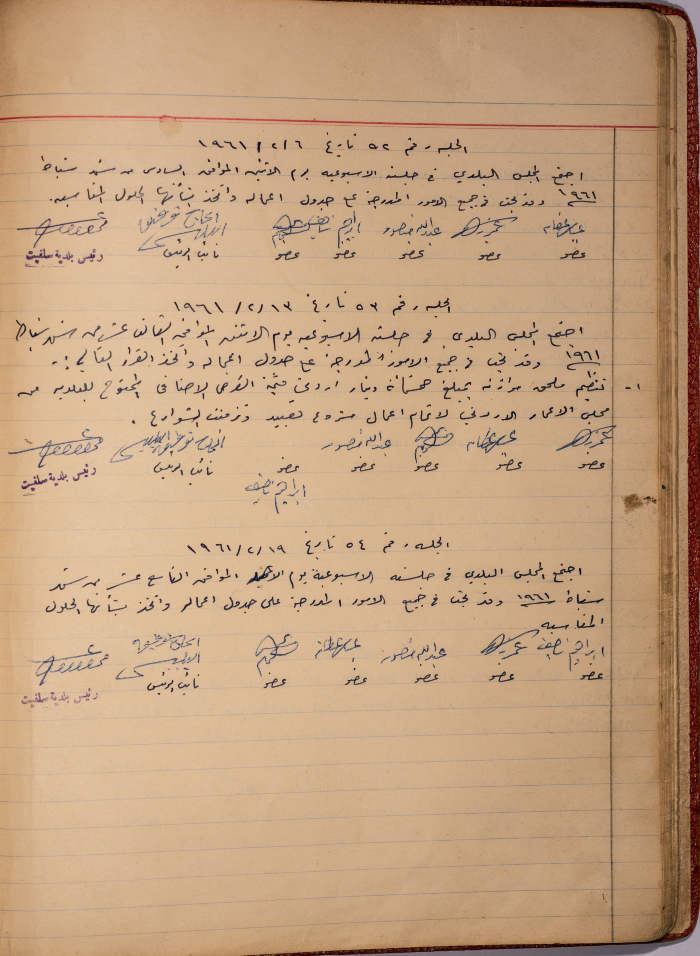 الجلسه رقم ٥٢ تاريخ ١٩٦١/٢/٦
اجتمع المجلس البلدي في جلسته الاسبوعيه يوم الاثنين الموافق السادس من شهر شباط
١٩٦١ وقد بحث في جميع الامور المدرجة على جدول اعماله واتخذ بشأنها الحلول المناسبه.
عبدالله منصور ابراهيم الحاج توفيق
عضو عضو عضو عضو عضو نائب الرئيس رئيس بلدية سلفيت
الجلسه رقم ٥٣ تاريخ ١٩٦١/٢/١٣
اجتمع المجلس البلدي في جلسته الاسبوعيه يوم الاثنين الموافق الثالث عشر من شهر شباط
١٩٦١ وقد بحث في جميع الامور المدرجة على جدول اعماله واتخذ القرار التالي :-
١- تنظيم ملحق موازنه بمبلغ خمسماية دينار اردني قيمة القرض الاضافي الممنوح للبلديه من
مجلس الاعمار الاردني لاتمام اعمال مشروع تعبيد وتزفيت الشوارع .
عبدالله منصور الحاج توفيق
عضو عضو عضو عضو عضو نائب الرئيس رئيس بلدية سلفيت
ابراهيم
الجلسه رقم ٥٤ تاريخ ١٩٦١/٢/١٩
اجتمع المجلس البلدي في جلسته الاسبوعية يوم الاحد الموافق التاسع عشر من شهر
شباط ١٩٦١ وقد بحث في جميع الامور المدرجة على جدول اعماله واتخذ بشأنها الحلول
المناسبه
ابراهيم عبدالله منصور الحاج توفيق
عضو عضو عضو عضو عضو نائب الرئيس رئيس بلدية سلفيت